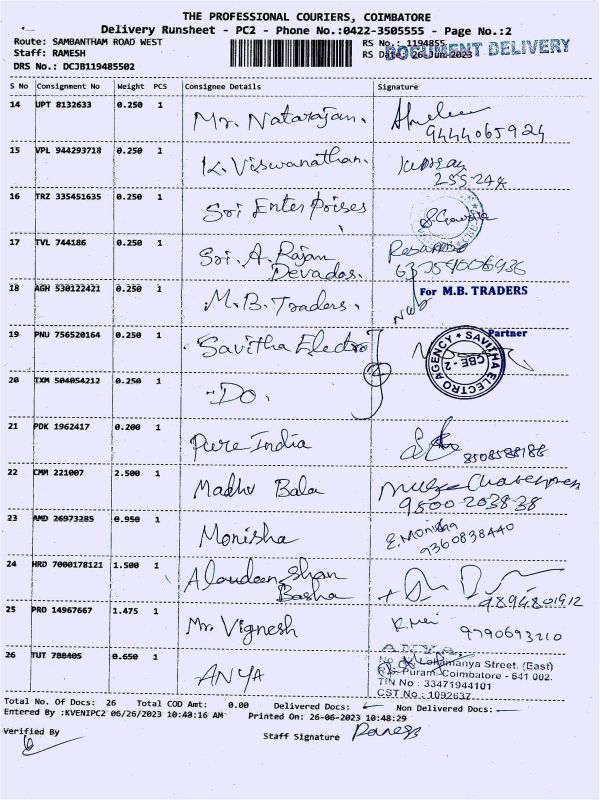 THE PROFESSIONAL COURIERS, COIMBATORE
Delivery Runsheet - PC2 - Phone No.:0422-3505555 - Page No.:2
Route: SAMBANTHAM ROAD WEST RS No.: 1194855
DOCUMENT DELIVERY
Staff: RAMESH RS Date: 26-Jun-2023
DRS No.: DCJB119485502
S No Consignment No Weight PCS Consignee Details Signature
14 UPT 8132633 0.250 1 Mr. Natarajan.
9444065924
15 VPL 944293718 0.250 1 K. Viswanathan.
16 TRZ 335451635 0.250 1 Sri Enterprises
17 TVL 744186 0.250 1 Sri. A. Rajan
Devados.
18 AGH 530122421 0.250 1 M.B. Traders. For M.B. TRADERS
Partner
19 PNU 756520164 0.250 1 Savitha Electro
SAVITHA ELECTRO AGENCY CBE-2
20 TXM 504054212 0.250 1 -Do.
21 PDK 1962417 0.200 1 Pure India
8508588186
22 CMM 221007 2.500 1 Madhu Bala
9500203838
23 AMD 26973285 0.950 1 Monisha E. Monisha
9360838440
24 HRD 7000178121 1.500 1 Alaudeen Shan
Basha 9894801912
25 PRO 14967667 1.475 1 Mr. Vignesh
9790693210
26 TUT 788405 0.650 1 ANYA
ANYA
Lokamanya Street. (East)
R.S. Puram, Coimbatore - 641 002.
TIN No : 33471944101
CST No : 1092637
Total No. Of Docs: 26 Total COD Amt: 0.00 Delivered Docs: Non Delivered Docs:
Entered By :KVENIPC2 06/26/2023 10:48:16 AM Printed On: 26-06-2023 10:48:29
Verified By Staff Signature